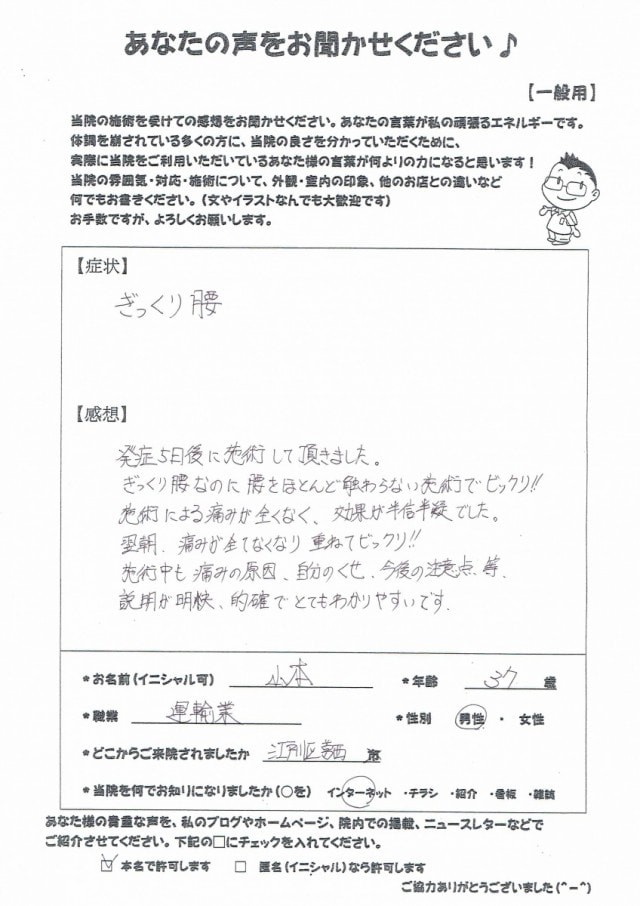 あなたの声をお聞かせください♪
【一般用】
当院の施術を受けての感想をお聞かせください。あなたの言葉が私の頑張るエネルギーです。
体調を崩されている多くの方に、当院の良さを分かっていただくために、
実際に当院をご利用いただいているあなた様の言葉が何よりの力になると思います！
当院の雰囲気・対応・施術について、外観・室内の印象、他のお店との違いなど
何でもお書きください。（文やイラストなんでも大歓迎です）
お手数ですが、よろしくお願いします。
【症状】
ぎっくり腰
【感想】
発症5日後に施術して頂きました。
ぎっくり腰なのに腰をほとんど触わらない施術でビックリ!!
施術による痛みが全くなく、効果が半信半疑でした。
翌朝、痛みが全てなくなり重ねてビックリ!!
施術中も痛みの原因、自分のくせ、今後の注意点、等、
説明が明快、的確でとてもわかりやすいです.
*お名前（イニシャル可） 小本 *年齢 37 歳
*職業 運輸業 *性別 男性 ・ 女性
*どこからご来院されましたか 江戸川区葛西 市
*当院を何でお知りになりましたか（○を） インターネット ・チラシ ・紹介 ・看板 ・雑誌
あなた様の貴重な声を、私のブログやホームページ、院内での掲載、ニュースレターなどで
ご紹介させてください。下記の□にチェックを入れてください。
☑ 本名で許可します □ 匿名（イニシャル）なら許可します
ご協力ありがとうございました（^－^）